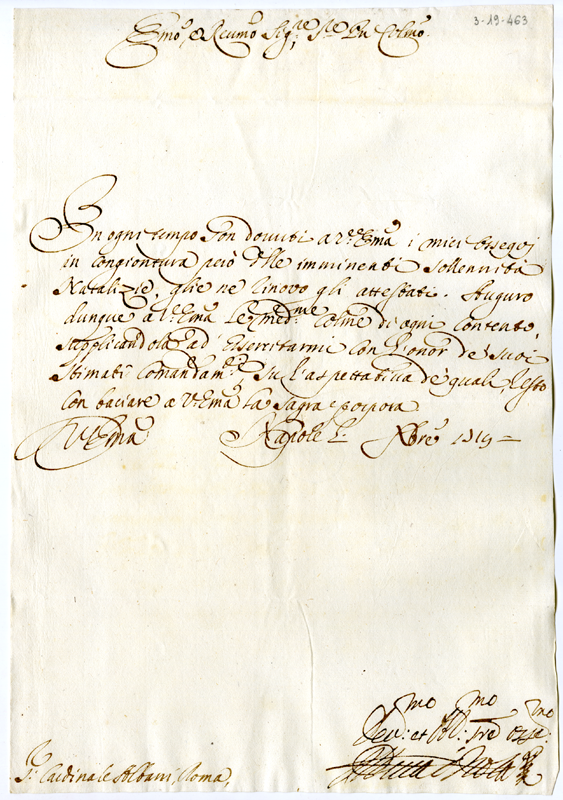 3-19-463
Emo, e Reumo Sig:re Sre Pn Colmo.
In ogni tempo son douuti a V:Ema i miei ossequi
in congiontura però delle imminenti sollennità
Natalizie, glie ne rinovo gli attestati. Auguro
dunque à V:Ema le med:me colme di ogni contento,
supplicandola ad esercitarmi con l'onor de suoi
stimati comandam:ti, su l'aspettatiua de quali, resto
con baciare a V:Ema la sagra porpora
V:Ema Napole Xbre 1719
Deu:mo et Obl:mo Sre
S:r Cardinale Albani, Roma,